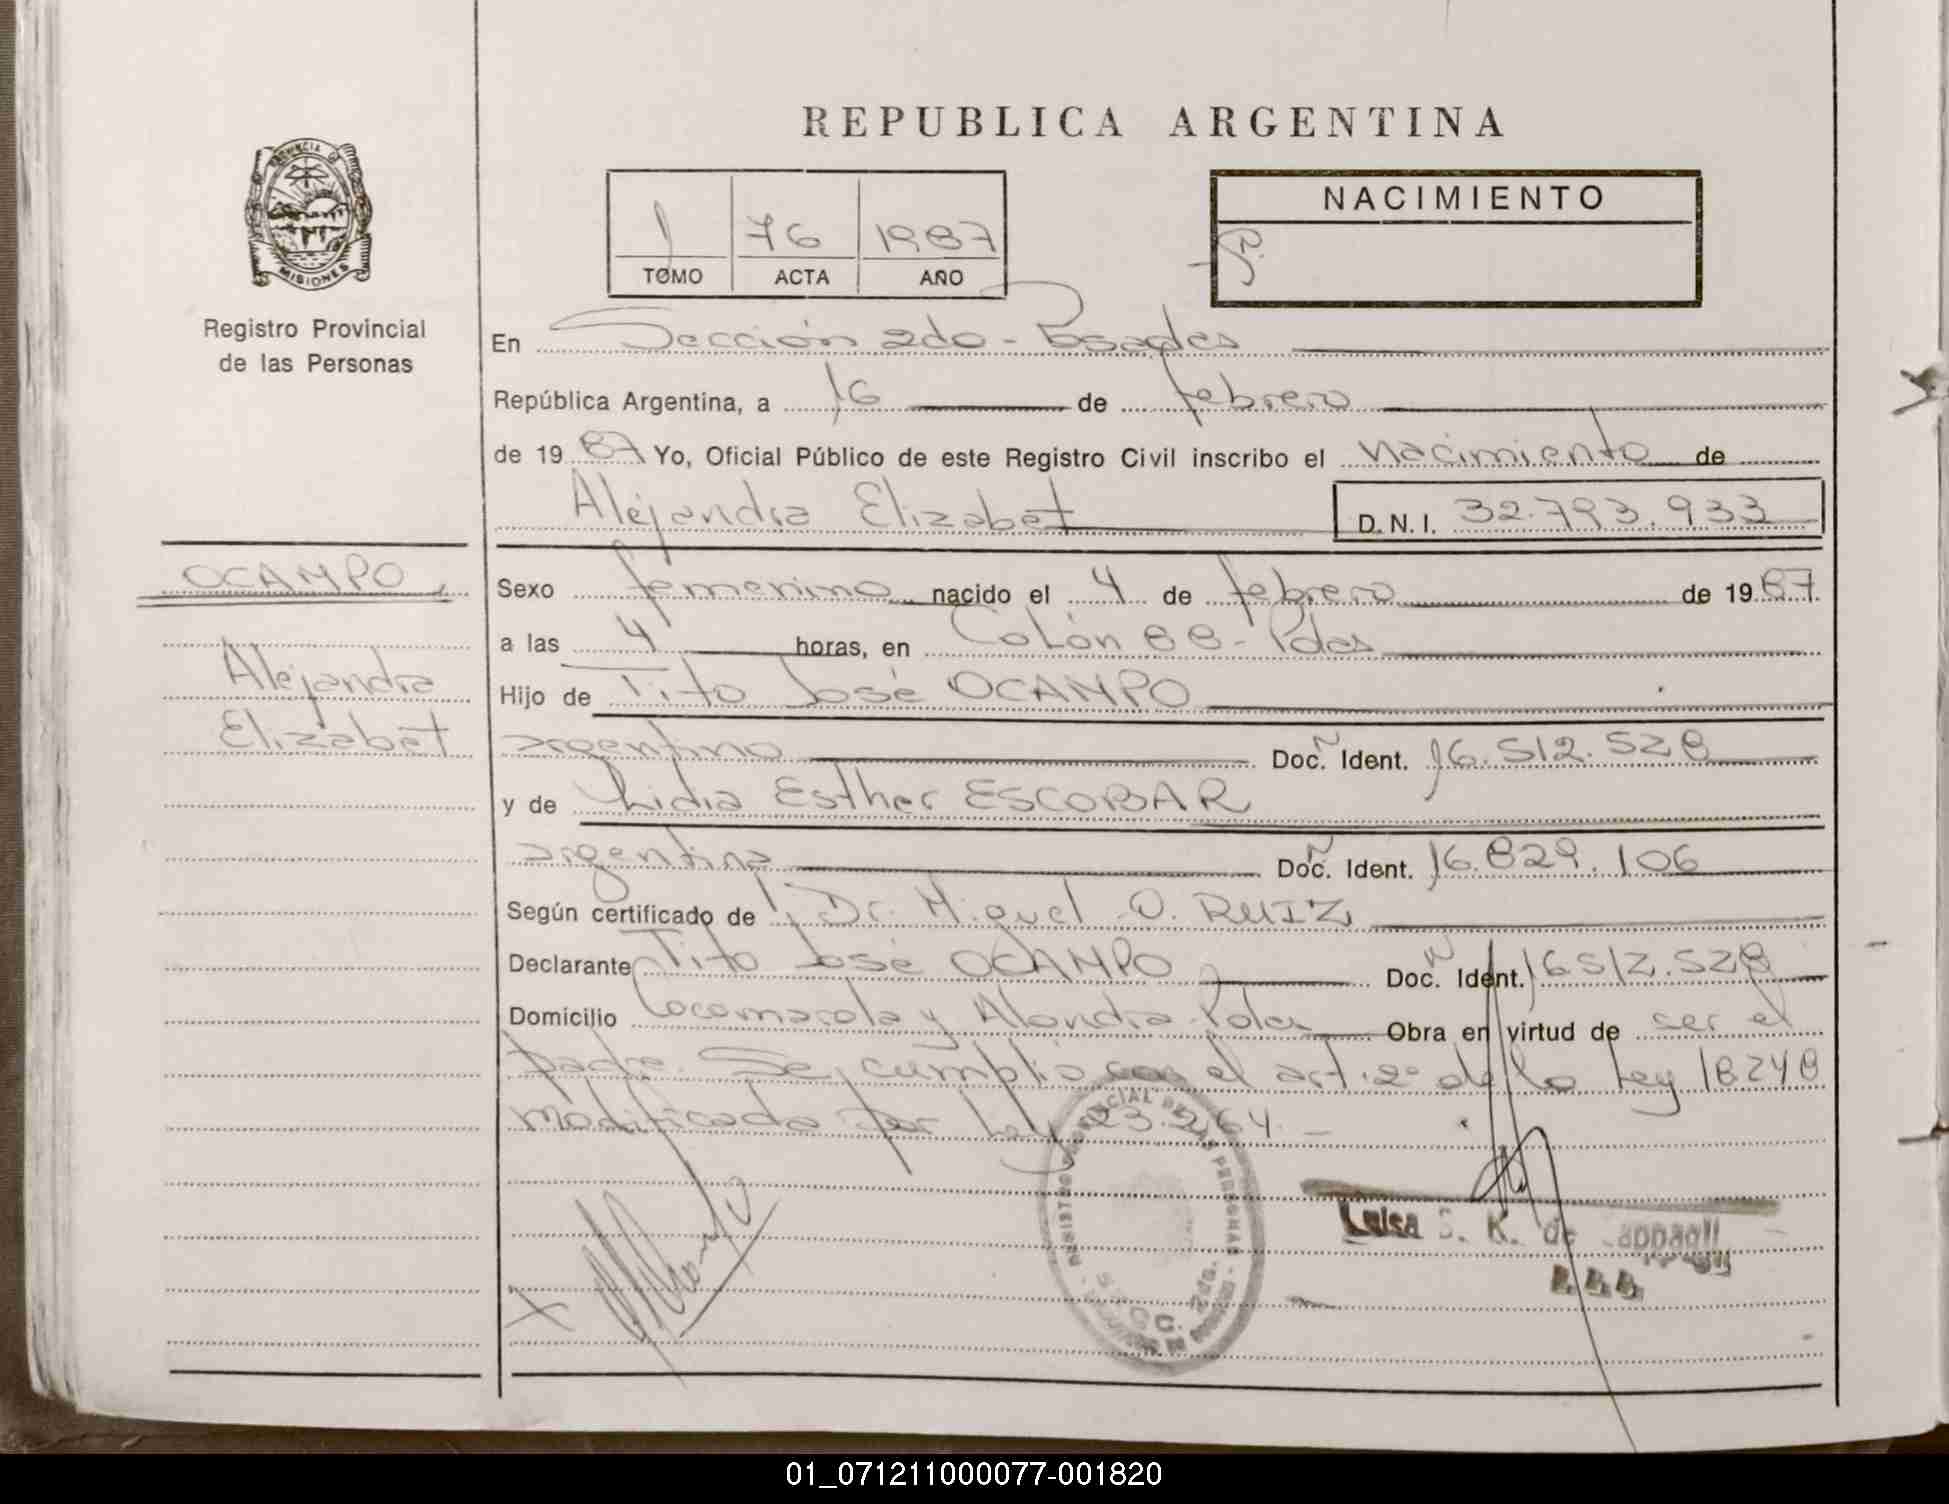 REPUBLICA ARGENTINA
PROVINCIA DE
MISIONES
Registro Provincial
de las Personas
1 76 1987
TOMO ACTA AÑO
NACIMIENTO
En Sección 2do - Posadas
República Argentina, a 16 de febrero
de 1987 Yo, Oficial Público de este Registro Civil inscribo el nacimiento de
Alejandra Elizabet D.N.I. 32.793.933
OCAMPO,
Alejandra
Elizabet
Sexo femenino nacido el 4 de febrero de 1987
a las 4 horas, en Colón 88 - Pdas
Hijo de Tito José OCAMPO
argentino Doc. Ident. 16.512.528
y de Lidia Esther ESCOBAR
argentina Doc. Ident. 16.829.106
Según certificado de Dr. Miguel O. RUIZ
Declarante Tito José OCAMPO Doc. Ident. 16512.528
Domicilio Cocomarola y Alondra - Pdas Obra en virtud de ser el
padre. Se cumplió con el art. 2º de la Ley 18248
modificada por Ley 23.264. -
REGISTRO PROVINCIAL DE LAS PERSONAS
Luisa S. K. de